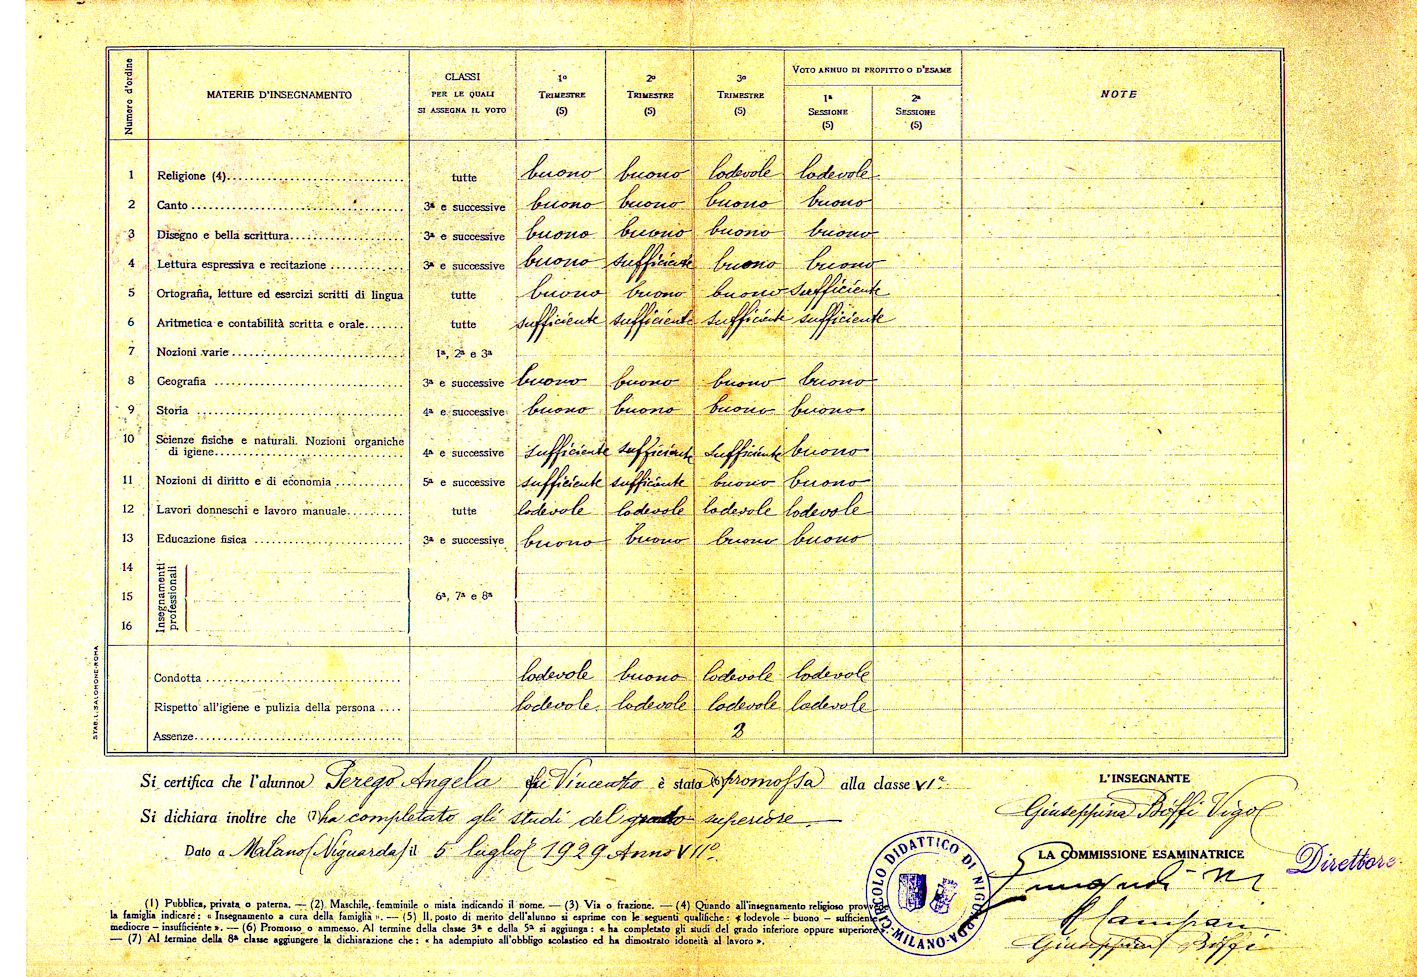 Numero d'ordine
MATERIE D'INSEGNAMENTO
CLASSI PER LE QUALI SI ASSEGNA IL VOTO
1º TRIMESTRE (5)
2º TRIMESTRE (5)
3º TRIMESTRE (5)
VOTO ANNUO DI PROFITTO O D'ESAME
1ª SESSIONE (5)
2ª SESSIONE (5)
NOTE
1 Religione (4) tutte buono buono lodevole lodevole
2 Canto 3ª e successive buono buono buono buono
3 Disegno e bella scrittura 3ª e successive buono buono buono buono
4 Lettura espressiva e recitazione 3ª e successive buono sufficiente buono buono
5 Ortografia, letture ed esercizi scritti di lingua tutte buono buono buono sufficiente
6 Aritmetica e contabilità scritta e orale tutte sufficiente sufficiente sufficiente sufficiente
7 Nozioni varie 1ª, 2ª e 3ª
8 Geografia 3ª e successive buono buono buono buono
9 Storia 4ª e successive buono buono buono buono
10 Scienze fisiche e naturali. Nozioni organiche
di igiene 4ª e successive sufficiente sufficiente sufficiente buono
11 Nozioni di diritto e di economia 5ª e successive sufficiente sufficiente buono buono
12 Lavori donneschi e lavoro manuale tutte lodevole lodevole lodevole lodevole
13 Educazione fisica 3ª e successive buono buono buono buono
14
15 Insegnamenti professionali 6ª, 7ª e 8ª
16
Condotta lodevole buono lodevole lodevole
Rispetto all'igiene e pulizia della persona lodevole lodevole lodevole lodevole
Assenze 3
STAB. L. SALOMONE-ROMA
Si certifica che l'alunna Perego Angela di Vincenzo è stata (6) promossa alla classe VIª
Si dichiara inoltre che (7) ha completato gli studi del grado superiore
Dato a Milano (Niguarda) il 5 luglio 1929 Anno VIIº
L'INSEGNANTE
Giuseppina Böffi Vigo
LA COMMISSIONE ESAMINATRICE
Direttore
Campari
Giuseppina Böffi
CIRCOLO DIDATTICO DI NIGUARDA - MILANO
(1) Pubblica, privata o paterna. — (2) Maschile, femminile o mista indicando il nome. — (3) Via o frazione. — (4) Quando all'insegnamento religioso provvede
la famiglia indicare: « Insegnamento a cura della famiglia ». — (5) Il posto di merito dell'alunno si esprime con le seguenti qualifiche: « lodevole – buono – sufficiente
mediocre – insufficiente ». — (6) Promosso o ammesso. Al termine della classe 3ª e della 5ª si aggiunga: « ha completato gli studi del grado inferiore oppure superiore
— (7) Al termine della 8ª classe aggiungere la dichiarazione che: « ha adempiuto all'obbligo scolastico ed ha dimostrato idoneità al lavoro ».